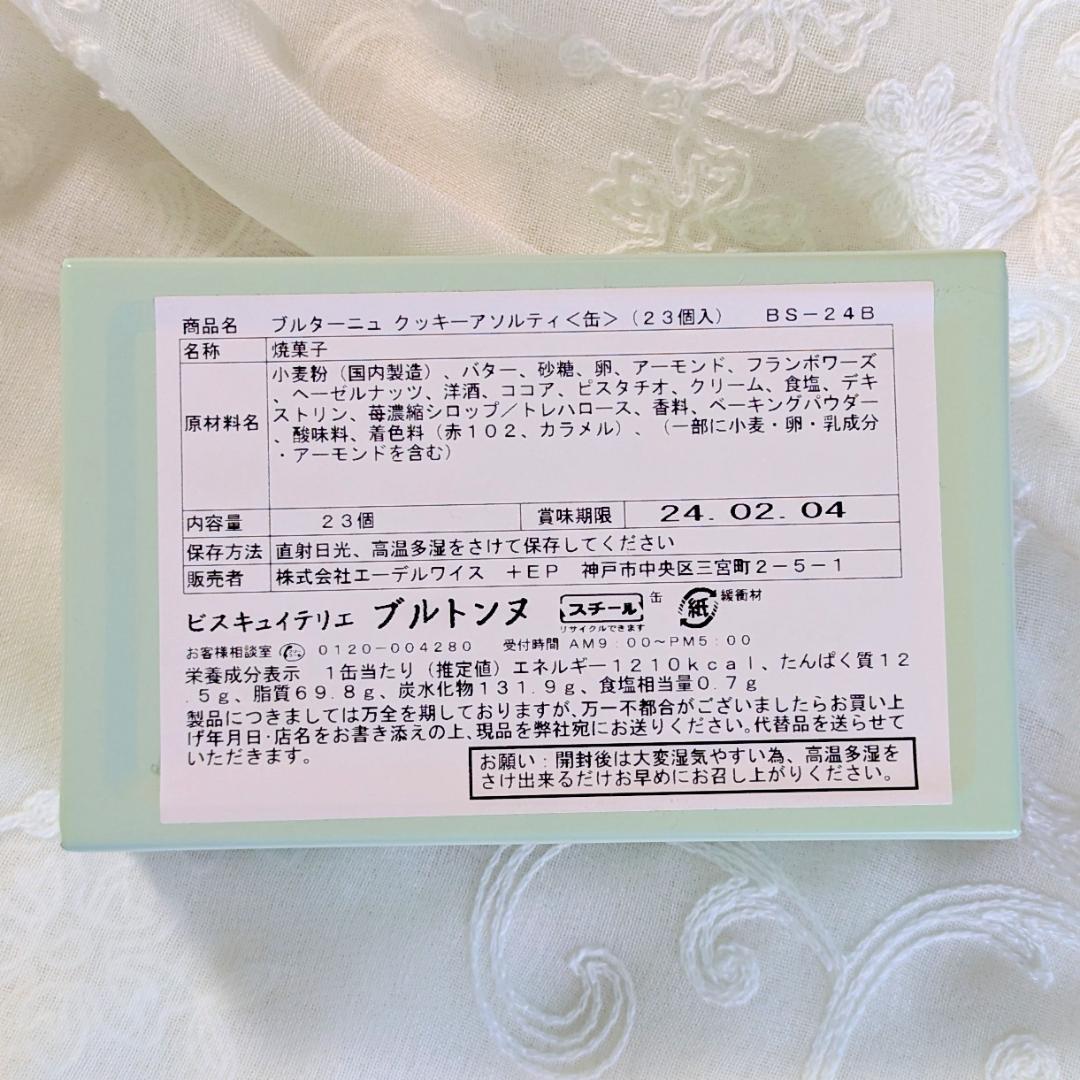 商品名 ブルターニュ クッキーアソルティ＜缶＞（２３個入） ＢＳ－２４Ｂ
名称 焼菓子
原材料名 小麦粉（国内製造）、バター、砂糖、卵、アーモンド、フランボワーズ
、ヘーゼルナッツ、洋酒、ココア、ピスタチオ、クリーム、食塩、デキ
ストリン、苺濃縮シロップ／トレハロース、香料、ベーキングパウダー
、酸味料、着色料（赤１０２、カラメル）、（一部に小麦・卵・乳成分
・アーモンドを含む）
内容量 ２３個 賞味期限 24. 02. 04
保存方法 直射日光、高温多湿をさけて保存してください
販売者 株式会社エーデルワイス ＋ＥＰ 神戸市中央区三宮町２－５－１
ビスキュイテリエ ブルトンヌ スチール 缶 紙 緩衝材
リサイクルできます
お客様相談室 ０１２０－００４２８０ 受付時間 ＡＭ９：００～ＰＭ５：００
栄養成分表示 １缶当たり（推定値）エネルギー１２１０ｋｃａｌ、たんぱく質１２
．５ｇ、脂質６９.８ｇ、炭水化物１３１.９ｇ、食塩相当量０.７ｇ
製品につきましては万全を期しておりますが、万一不都合がございましたらお買い上
げ年月日・店名をお書き添えの上、現品を弊社宛にお送りください。代替品を送らせて
いただきます。
お願い：開封後は大変湿気やすい為、高温多湿を
さけ出来るだけお早めにお召し上がりください。